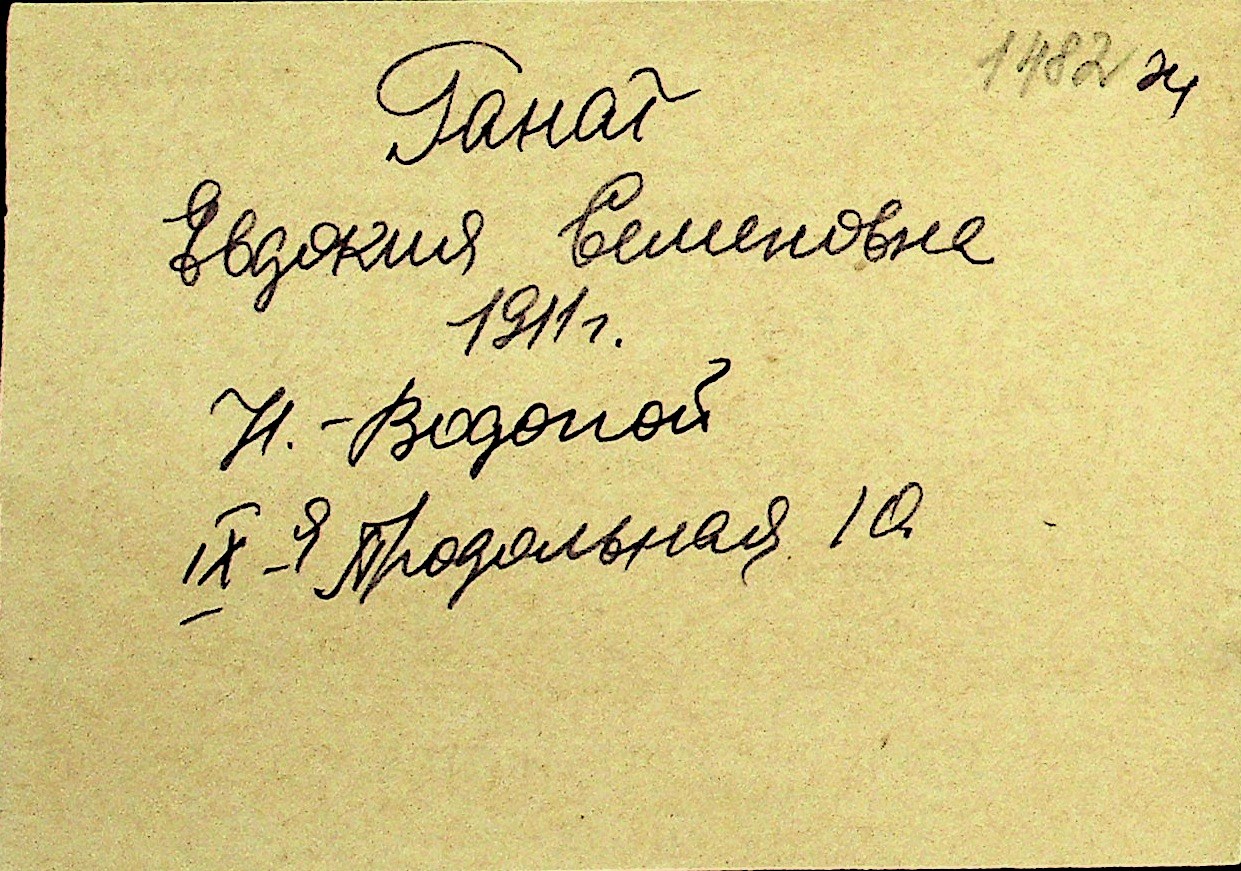 1482
Ганат
Евдокия Семеновна
1911г.
Н.-Водопой
IX-я Продольная 10